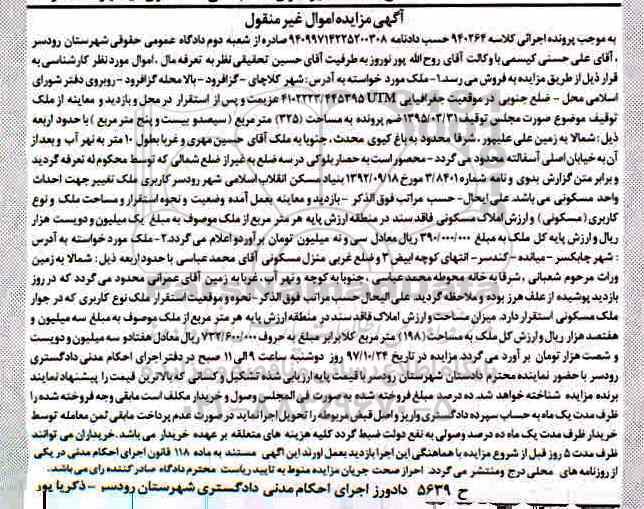 آگهی مزایده اموال غیر منقول
به موجب پرونده اجرائی کلاسه ۹۴۰۲۶۴ حسب دادنامه ۹۴۰۹۹۷۱۴۲۲۵۲۰۰۳۰۸ صادره از شعبه دوم دادگاه عمومی حقوقی شهرستان رودسر
، آقای علی حسنی کیسمی با وکالت آقای روح الله پور نوروز به طرفیت آقای حسین تحقیقی نظر به تعرفه مال ، اموال مورد نظر کارشناسی به
قرار ذیل از طریق مزایده به فروش می رسد.۱- ملک مورد خواسته به آدرس: شهر کلاچای - گزافرود - بالا محله گزافرود - روبروی دفتر شورای
اسلامی محل - ضلع جنوبی در موقعیت جغرافیایی UTM ۴۱۰۲۲۲۳/۴۴۵۳۹۵ عزیمت و پس از استقرار در محل و بازدید و معاینه از ملک
توقیف موضوع صورت مجلس توقیف ۱۳۹۵/۰۳/۳۱ ضم پرونده به مساحت (۳۲۵) متر مربع (سیصدو بیست و پنج متر مربع ) با حدود اربعه
ذیل : شمالا به زمین علی علیپور ، شرقا محدود به باغ کیوی محدث، جنوبا به ملک آقای حسین مهری و غربا بطول ۱۰ متر به نهر آب و بعد از
آن به خیابان اصلی آسفالته محدود می گردد - محصور است به حصار بلوکی در سه ضلع به غیر از ضلع شمالی که توسط محکوم له تعرفه گردید
و برابر متن گزارش بدوی و نامه شماره ۳/۸۴۰۱ مورخ ۱۳۹۲/۰۹/۱۸ بنیاد مسکن انقلاب اسلامی شهر رودسر کاربری ملک تغییر جهت احداث
واحد مسکونی می باشد. علی ایحال - حسب مراتب فوق الذکر - بازدید و معاینه بعمل آمده وضعیت و نحوه استقرار و مساحت ملک و نوع
کاربری (مسکونی) و ارزش املاک مسکونی فاقد سند در منطقه ارزش پایه هر متر مربع از ملک موصوف به مبلغ یک میلیون و دویست هزار
ریال و ارزش پایه کل ملک به مبلغ ۳۹۰/۰۰۰/۰۰۰ ریال معادل سی و نه میلیون تومان برآورد و اعلام می گردد.۲- ملک مورد خواسته به آدرس
: شهر چابکسر - میانده - گندسر - انتهای کوچه لبیض ۳ و ضلع غربی منزل مسکونی آقای محمد عباسی با حدود اربعه ذیل : شمالا به زمین
وراث مرحوم شعبانی ، شرقا به خانه محوطه محمد عباسی ، جنوبا به کوچه و نهر آب، غربا به زمین آقای عمرانی محدود می گردد که در روز
بازدید پوشیده از علف هرز بوده و ملاحظه گردید. علی الیحال حسب مراتب فوق الذکر - نحوه و موقعیت استقرار ملک نوع کاربری که در جوار
ملک مسکونی استقرار دارد. میزان مساحت و ارزش املاک فاقد سند در منطقه ارزش پایه هر متر مربع از ملک موصوف به مبلغ سه میلیون و
هفتصد هزار ریال و ارزش کل ملک به مساحت (۱۹۸) متر مربع کلا برابر مبلغ به حروف ۷۳۲/۶۰۰/۰۰۰ ریال معادل هفتادو سه میلیون و دویست
و شصت هزار تومان بر آورد می گردد. مزایده در تاریخ ۹۷/۱۰/۲۴ روز دوشنبه ساعت ۹ الی ۱۱ صبح در دفتر اجرای احکام مدنی دادگستری
رودسر با حضور نماینده محترم دادستان شهرستان رودسر با قیمت پایه ارزیابی شده تشکیل و کسانی که بالاترین قیمت را پیشنهاد نمایند
برنده مزایده شناخته خواهد شد. ده درصد مبلغ فروخته شده به صورت فی المجلس وصول و خریدار مکلف است مابقی وجه فروخته شده را
ظرف مدت یک ماه به حساب سپرده دادگستری واریز و اصل فیش مربوطه را تحویل اجرا نماید در صورت عدم پرداخت مابقی ثمن معامله توسط
خریدار ظرف مدت یک ماه ده درصد وصولی به نفع دولت ضبط گردد کلیه هزینه های متعلقه بر عهده خریدار می باشد. خریداران می توانند
ظرف مدت ۵ روز قبل از شروع مزایده با هماهنگی این اجرا بازدید بعمل آورند این آگهی مستند به ماده ۱۱۸ قانون اجرای احکام مدنی در یکی
از روزنامه های محلی درج و منتشر می گردد. احراز صحت جریان مزایده منوط به تایید ریاست محترم دادگاه صادر کننده رای می باشد.
ح ۵۶۳۹ دادورز اجرای احکام مدنی دادگستری شهرستان رودسر - ذکریا پور